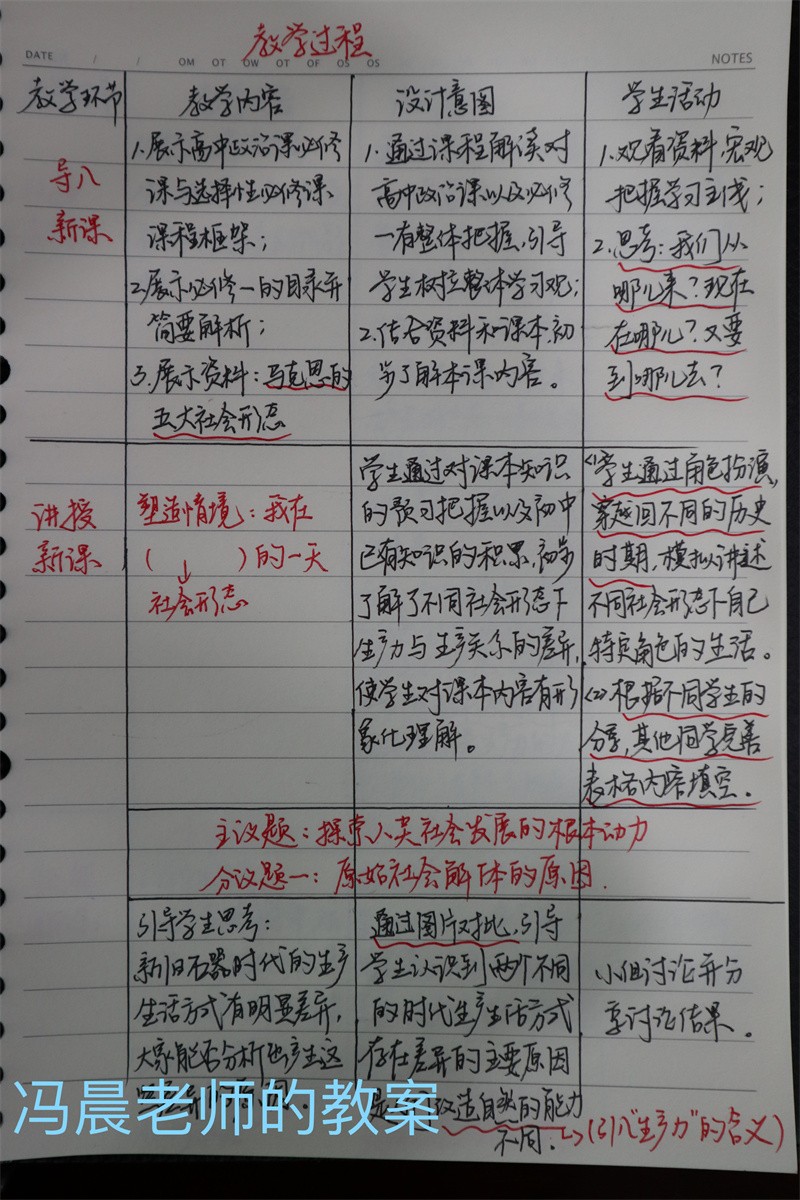 教学过程
DATE / / OM OT OW OT OF OS OS NOTES
教学环节 教学内容 设计意图 学生活动
导入
新课
1.展示高中政治课必修
课与选择性必修课
课程框架；
2.展示必修一的目录并
简要解析；
3.展示资料：马克思的
五大社会形态
1.通过课程解读对
高中政治课以及必修
一有整体把握，引导
学生树立整体学习观；
2.结合资料和课本，初
步了解本课内容。
1.观看资料，宏观
把握学习主线；
2.思考：我们从
哪儿来？现在
在哪儿？又要
到哪儿去？
讲授
新课
塑造情境：我在
( )的一天
↓
社会形态
学生通过对课本知识
的预习把握以及初中
已有知识的积累，初步
了解了不同社会形态下
生产力与生产关系的差异，
使学生对课本内容有形
象化理解。
<1>学生通过角色扮演，
穿越回不同的历史
时期，模拟讲述
不同社会形态下自己
特定角色的生活。
<2>根据不同学生的
分享，其他同学完善
表格内容填空。
主议题：探索人类社会发展的根本动力
分议题一：原始社会解体的原因.
引导学生思考：
新旧石器时代的生产
生活方式有明显差异，
大家能否分析出产生这
通过图片对比，引导
学生认识到两个不同
的时代生产生活方式
存在差异的主要原因
改造自然的能力
不同.→(引入"生产力"的含义)
小组讨论并分
享讨论结果。
冯晨老师的教案